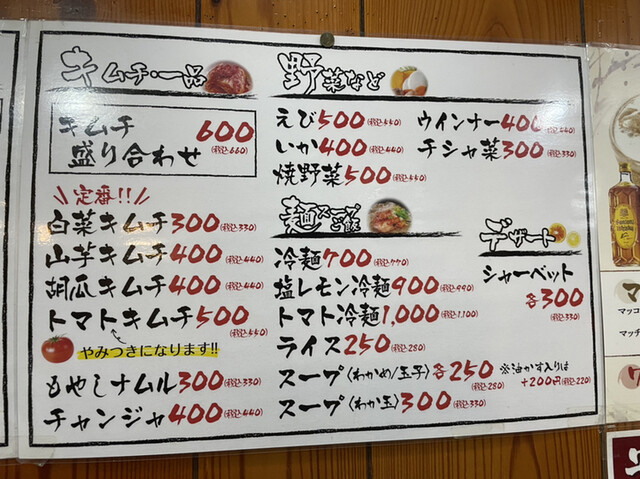 キムチ・一品
キムチ
盛り合わせ
600
(税込660)
定番!!
白菜キムチ300(税込330)
山芋キムチ400(税込440)
胡瓜キムチ400(税込440)
トマトキムチ500(税込550)
やみつきになります!!
もやしナムル300(税込330)
チャンジャ400(税込440)
野菜など
えび500(税込550)
いか400(税込440)
焼野菜500(税込550)
ウインナー400(税込440)
チシャ菜300(税込330)
麺スープ
ご飯
冷麺700(税込770)
塩レモン冷麺900(税込990)
トマト冷麺1,000(税込1,100)
ライス250(税込280)
スープ〈わかめ/玉子〉各250(税込280)
※油かす入りは
+200円(税込220)
スープ〈わか玉〉300(税込330)
デザート
シャーベット
各300
(税込330)
マッコ
マッチ